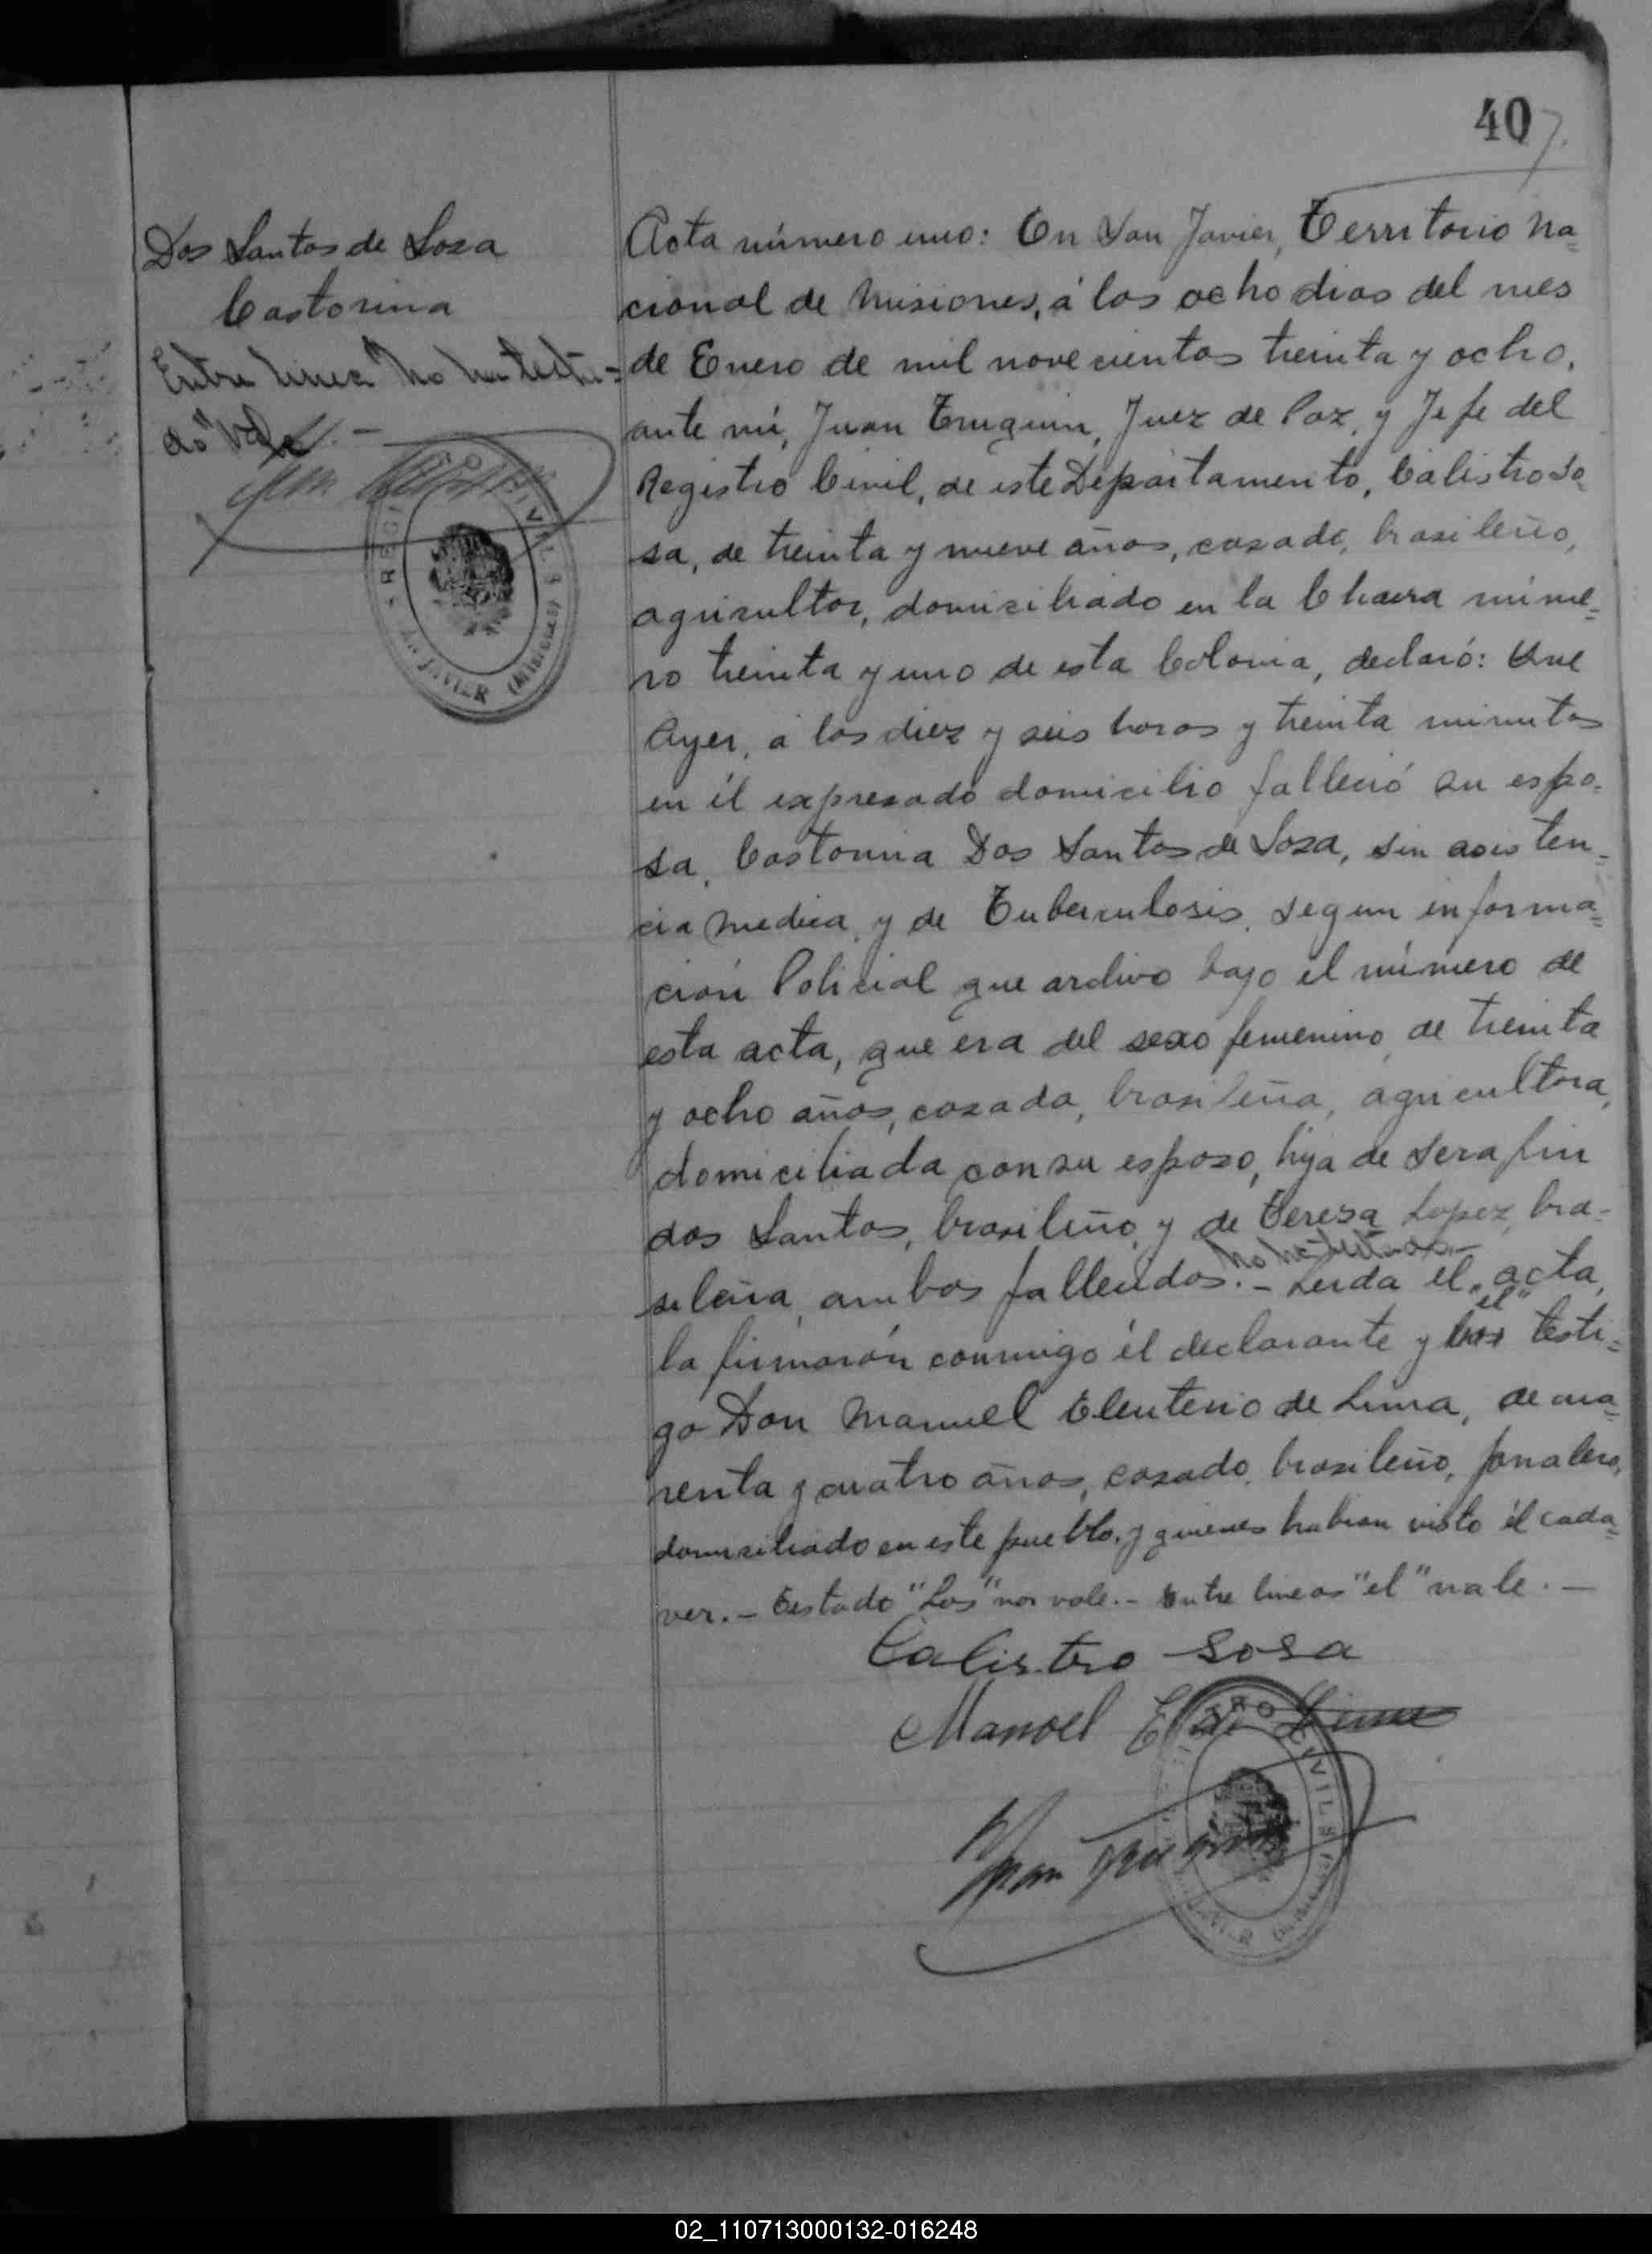 407.
Dos Santos de Sosa
Castorina
Entre linea "no ha testa=
do" Vale.-
REGISTRO CIVIL
SAN JAVIER (Misiones)
Acta número uno: En San Javier, Territorio Na=
cional de Misiones, á los ocho dias del mes
de Enero de mil novecientos treinta y ocho,
ante mi, Juan Truguin, Juez de Paz, y Jefe del
Registro Civil, de este Departamento, Calistro So=
sa, de treinta y nueve años, casado, brasileño,
agricultor, domiciliado en la Chacra núme=
ro treinta y uno de esta Colonia, declaró: Que
Ayer, á las diez y seis horas y treinta minutos
en él expresado domicilio falleció su espo=
sa, Castorina Dos Santos de Sosa, sin asisten=
cia medica, y de Tuberculosis, segun informa=
ción Policial que archivo bajo el número de
esta acta, que era del sexo femenino, de treinta
y ocho años, casada, brasileña, agricultora,
domiciliada con su esposo, hija de Serafin
dos Santos, brasileño, y de Teresa Lopez, bra=
sileña, ambos fallecidos.- Leida el acta,
no ha testado
la firmarón conmigo él declarante y los testi=
"el"
go Don Manuel Eleuterio de Lima, de cua=
renta y cuatro años, casado, brasileño, jornalero,
domiciliado en este pueblo, y quienes habian visto él cada=
ver.- Testado "Los" no vale.- Entre lineas "el" vale.-
Calistro Sosa
Manoel E. de Lima
Juan Truguin
REGISTRO CIVIL
SAN JAVIER (Misiones)
02_110713000132-016248